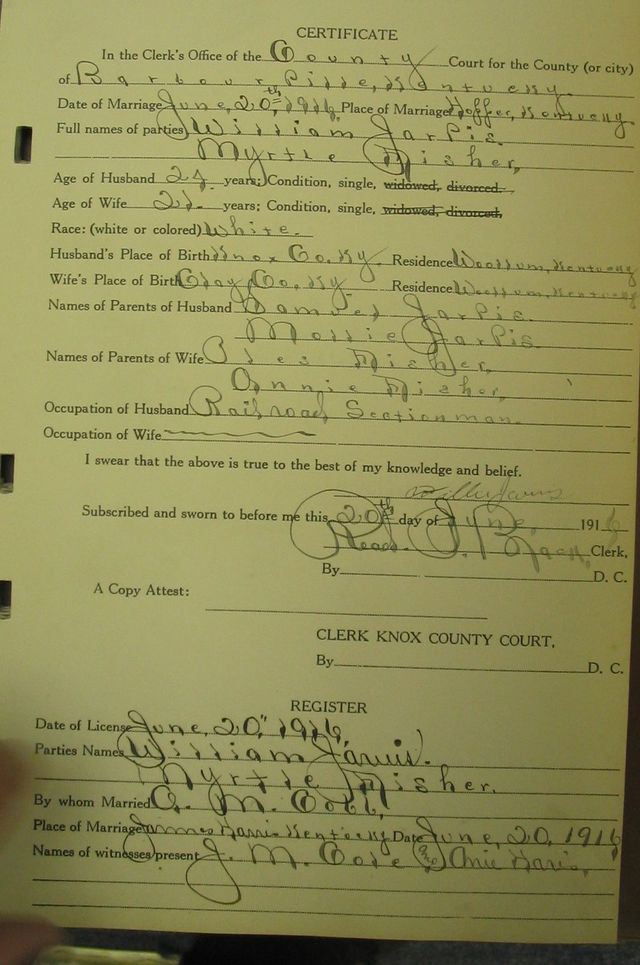 CERTIFICATE
In the Clerk's Office of the County Court for the County (or city)
of Barbourville, Kentucky.
Date of Marriage June, 20th 1916 Place of Marriage Kentucky
Full names of parties William Jarvis.
Myrtle Misher,
Age of Husband 24 years; Condition, single, widowed, divorced.
Age of Wife 21. years; Condition, single, widowed, divorced,
Race: (white or colored) White.
Husband's Place of Birth Knox Co. Ky. Residence Kentucky
Wife's Place of Birth Clay, Co. Ky. Residence Kentucky
Names of Parents of Husband Samuel Jarvis.
Mollie Jarvis
Names of Parents of Wife Misher,
Annie Misher,
Occupation of Husband Railroad Sectionman.
Occupation of Wife
I swear that the above is true to the best of my knowledge and belief.
Jarvis
Subscribed and sworn to before me this 20th day of June, 1916
Read P. Black, Clerk,
By D. C.
A Copy Attest:
CLERK KNOX COUNTY COURT,
By D. C.
REGISTER
Date of License June, 20, 1916,
Parties Names William Jarvis.
Myrtle Misher.
By whom Married M. Cobb,
Place of Marriage Kentucky Date June, 20, 1916
Names of witnesses present J. M. Cole and